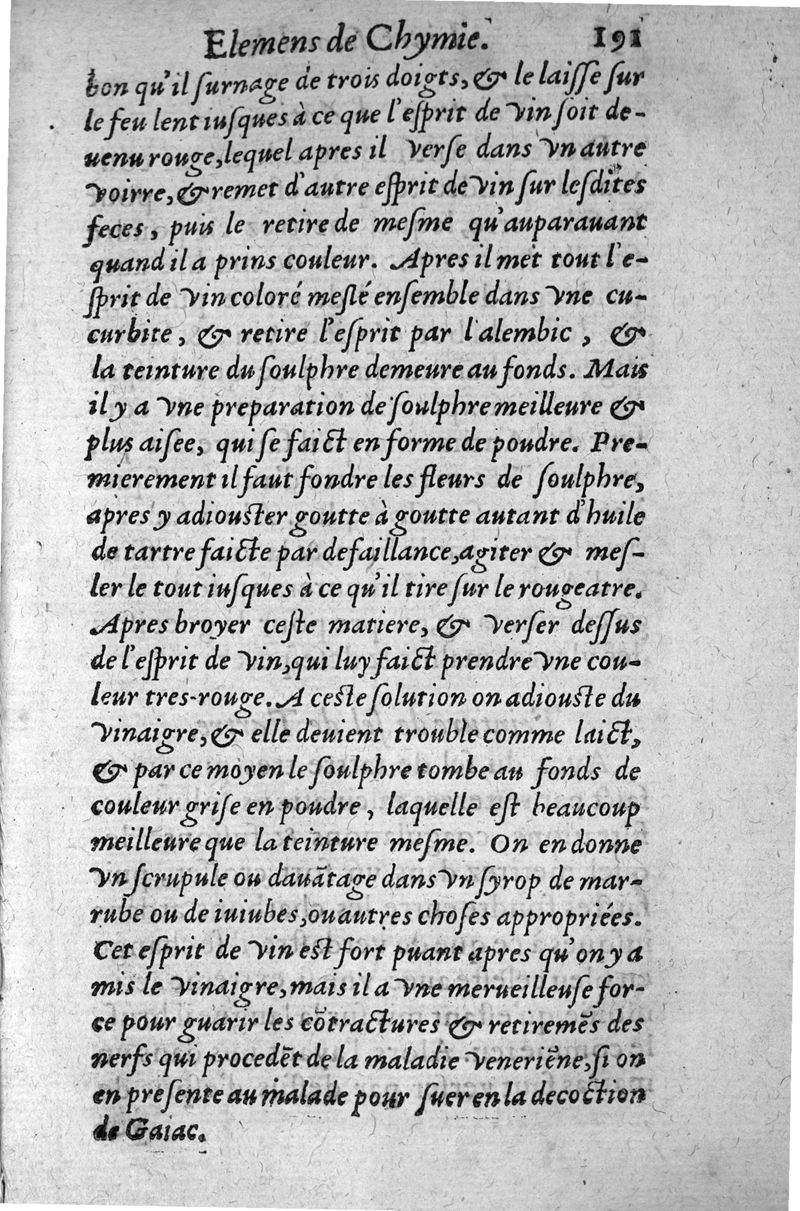 Elemens de Chymie. 191
bon qu'il ſurnage de trois doigts, & le laiſſe ſur
le feu lent iuſques à ce que l'eſprit de vin ſoit de-
uenu rouge, lequel apres il verſe dans vn autre
voirre, & remet d'autre eſprit de vin ſur leſdites
feces, puis le retire de meſme qu'auparauant
quand il a prins couleur. Apres il met tout l'e-
ſprit de vin coloré meſlé enſemble dans vne cu-
curbite, & retire l'eſprit par l'alembic, &
la teinture du ſoulphre demeure au fonds. Mais
il y a vne preparation de ſoulphre meilleure &
plus aiſee, qui ſe faict en forme de poudre. Pre-
mierement il faut fondre les fleurs de ſoulphre,
apres y adiouſter goutte à goutte autant d'huile
de tartre faicte par defaillance, agiter & meſ-
ler le tout iuſques à ce qu'il tire ſur le rougeatre.
Apres broyer ceſte matiere, & verſer deſſus
de l'eſprit de vin, qui luy faict prendre vne cou-
leur tres-rouge. A ceſte ſolution on adiouſte du
vinaigre, & elle deuient trouble comme laict,
& par ce moyen le ſoulphre tombe au fonds de
couleur griſe en poudre, laquelle eſt beaucoup
meilleure que la teinture meſme. On en donne
vn ſcrupule ou dauãtage dans vn ſyrop de mar-
rube ou de iuiubes, ou autres choſes appropriées.
Cet eſprit de vin eſt fort puant apres qu'on y a
mis le vinaigre, mais il a vne merueilleuſe for-
ce pour guarir les cõtractures & retiremẽs des
nerfs qui procedẽt de la maladie veneriẽne, ſi on
en preſente au malade pour ſuer en la decoction
de Gaiac.